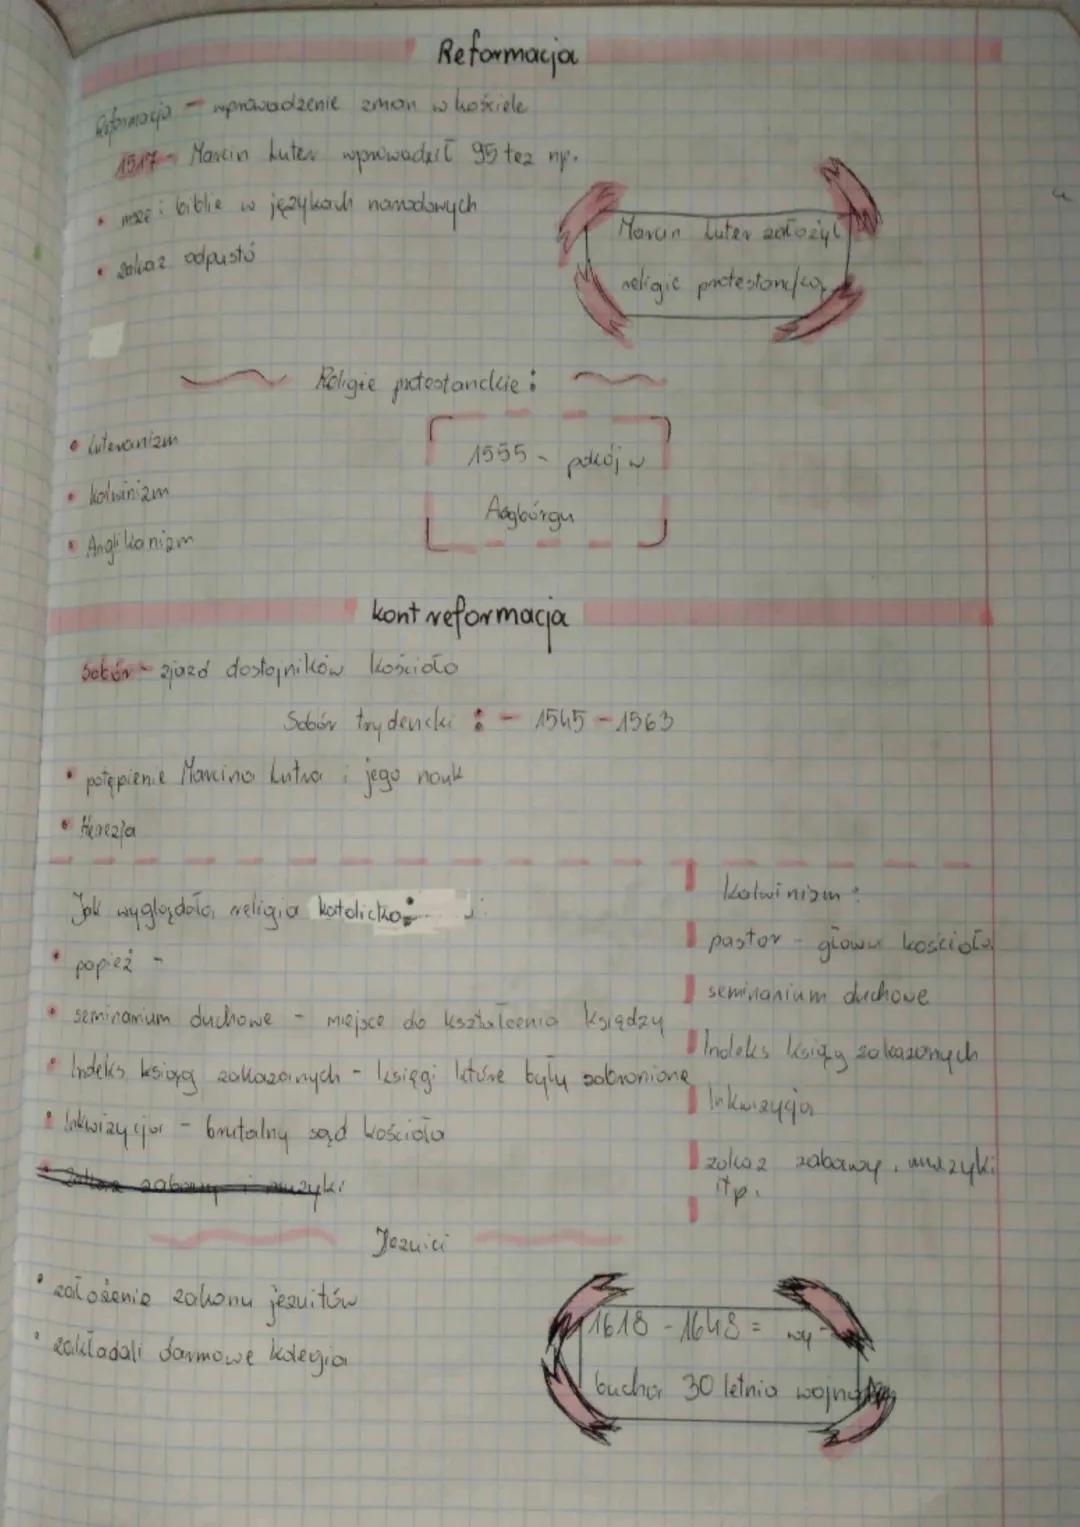 Reformacja
Reformacja - wprowadzenie zmian w kościele
1517 - Marcin Luter wprowadził 95 tez np.
• msze i biblie w językach narodowych
• zakaz odpustó
Marcin Luter założył
religie protestancką
Religie protestanckie:
• luteranizm
• kalwinizm
• Anglikanizm
1555 - pokój w
Augbórgu
kontreformacja
Sobór - zjazd dostojników kościoła
Sobór trydencki : - 1545 - 1563
• potępienie Marcina Lutra i jego nauk
• Herezja
Jak wyglądała religia katolicka:
• papież -
• seminarium duchowe - miejsce do kształcenia księdzy
• Indeks ksiąg zakazanych - księgi które były zabronione
• Inkwizycja - brutalny sąd kościoła
• Zakaz zabawy i muzyki
Kalwinizm:
pastor - głowa kościoła
seminarium duchowe
Indeks Ksiąg zakazanych
Inkwizycja
zakaz zabawy, muzyki
itp.
Jezuici
• założenie zakonu jezuitów
• zakładali darmowe kolegia
1618 - 1648 = wy-
bucha 30 letnia wojna